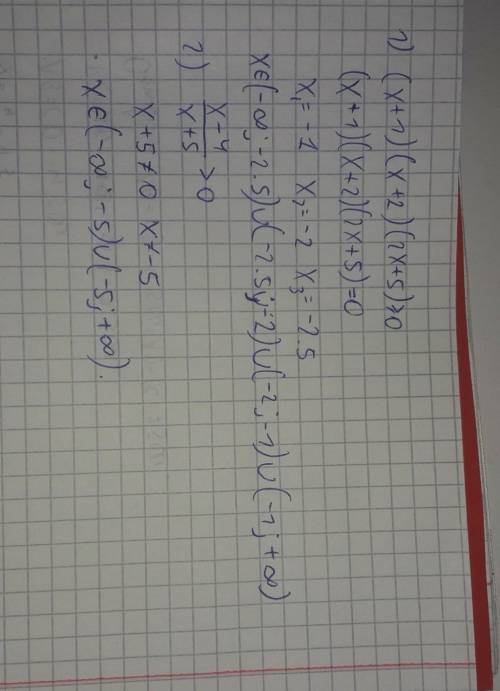 1) (x+1)(x+2)(2x+5)>0
(x+1)(x+2)(2x+5)=0
x₁=-1 x₂=-2 x₃=-2.5
x∈(-∞;-2.5)∪(-2.5;-2)∪(-2;-1)∪(-1;+∞)
2) x-4/x+5 >0
x+5≠0 x≠-5
x∈(-∞;-5)∪(-5;+∞).